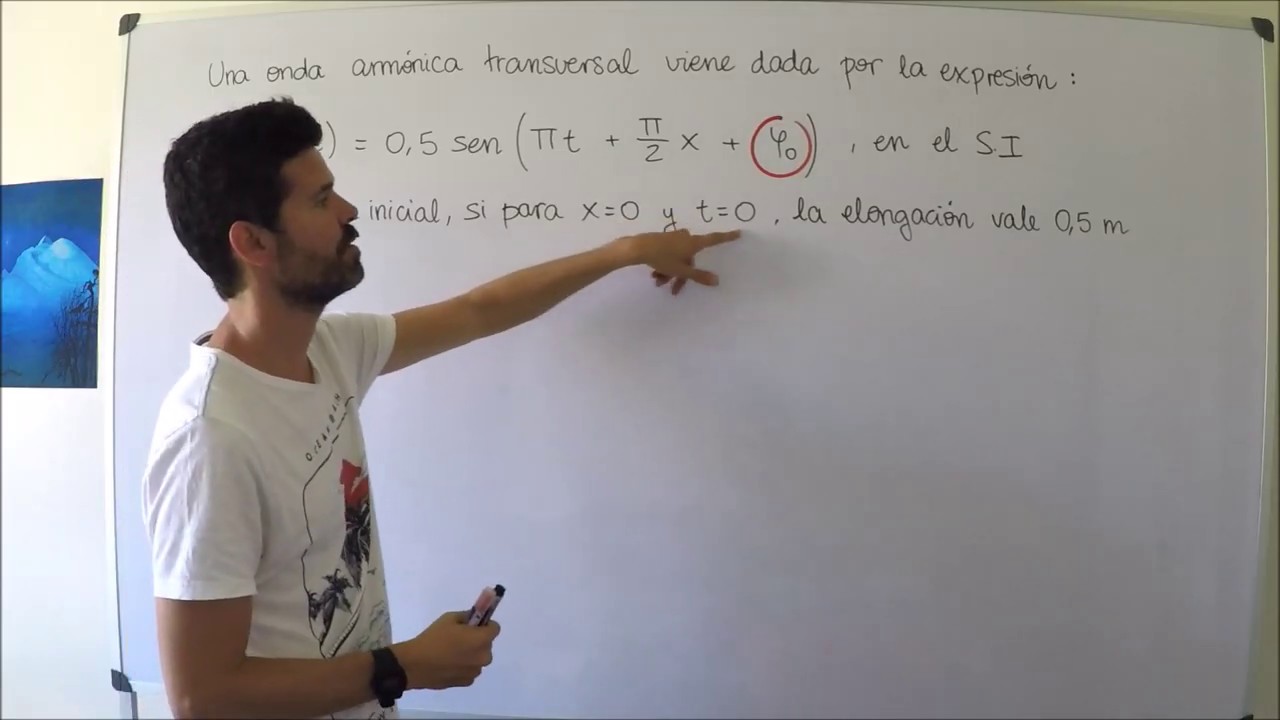 Una onda armónica transversal viene dada por la expresión :
) = 0,5 sen (πt + π/2 x + φ₀) , en el S.I
inicial, si para x=0 y t=0 , la elongación vale 0,5 m